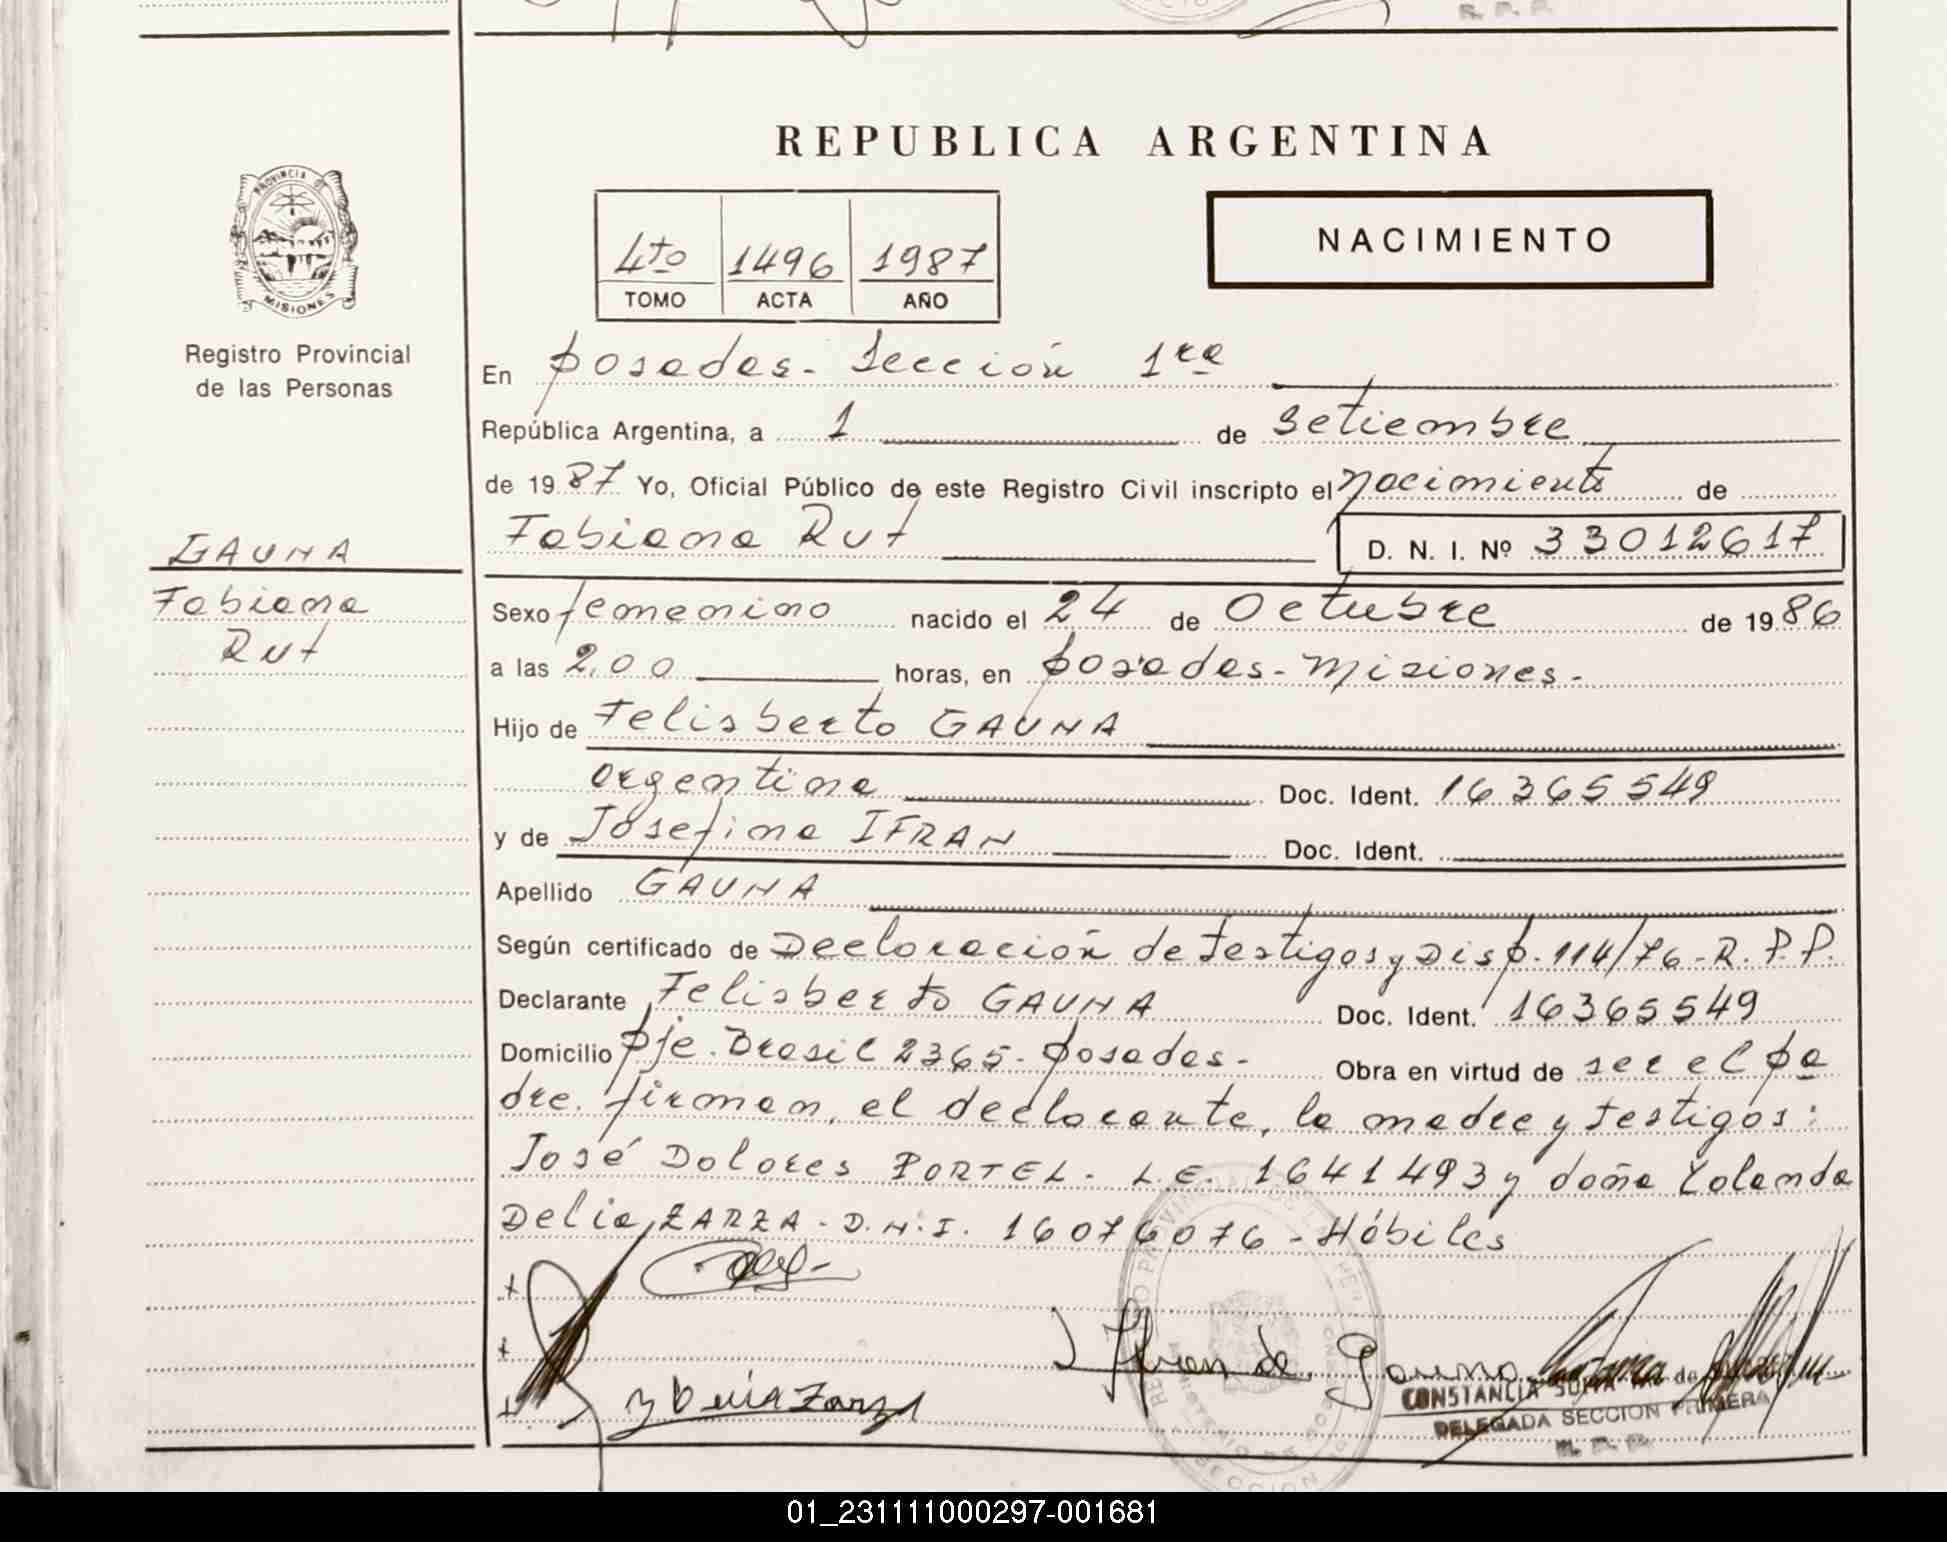 REPUBLICA ARGENTINA
PROVINCIA DE
MISIONES
Registro Provincial
de las Personas
4to 1496 1987
TOMO ACTA AÑO
NACIMIENTO
En posadas - Sección 1ra
República Argentina, a 1 de Setiembre
de 1987 Yo, Oficial Público de este Registro Civil inscripto el nacimiento de
GAUNA
Fabiana Rut D. N. I. Nº 33012617
Fabiana
Rut
Sexo femenino nacido el 24 de Octubre de 1986
a las 2,00 horas, en posadas - Misiones -
Hijo de Felisberto GAUNA
argentina Doc. Ident. 16365549
y de Josefina IFRAN Doc. Ident.
Apellido GAUNA
Según certificado de Declaración de testigos y Disp. 114/76 - R. P. P.
Declarante Felisberto GAUNA Doc. Ident. 16365549
Domicilio pje. Brasil 2365 - posadas - Obra en virtud de ser el pa
dre. firman, el declarante, la madre y testigos:
José Dolores PORTEL - L.E. 1641493 y doña Yolanda
Delia ZARZA - D.N.I. 16076076 - Hábiles
Ifran de Gauna
y Delia Zarza
CONSTANCIA
DELEGADA SECCION PRIMERA
R. P. P.
01_231111000297-001681